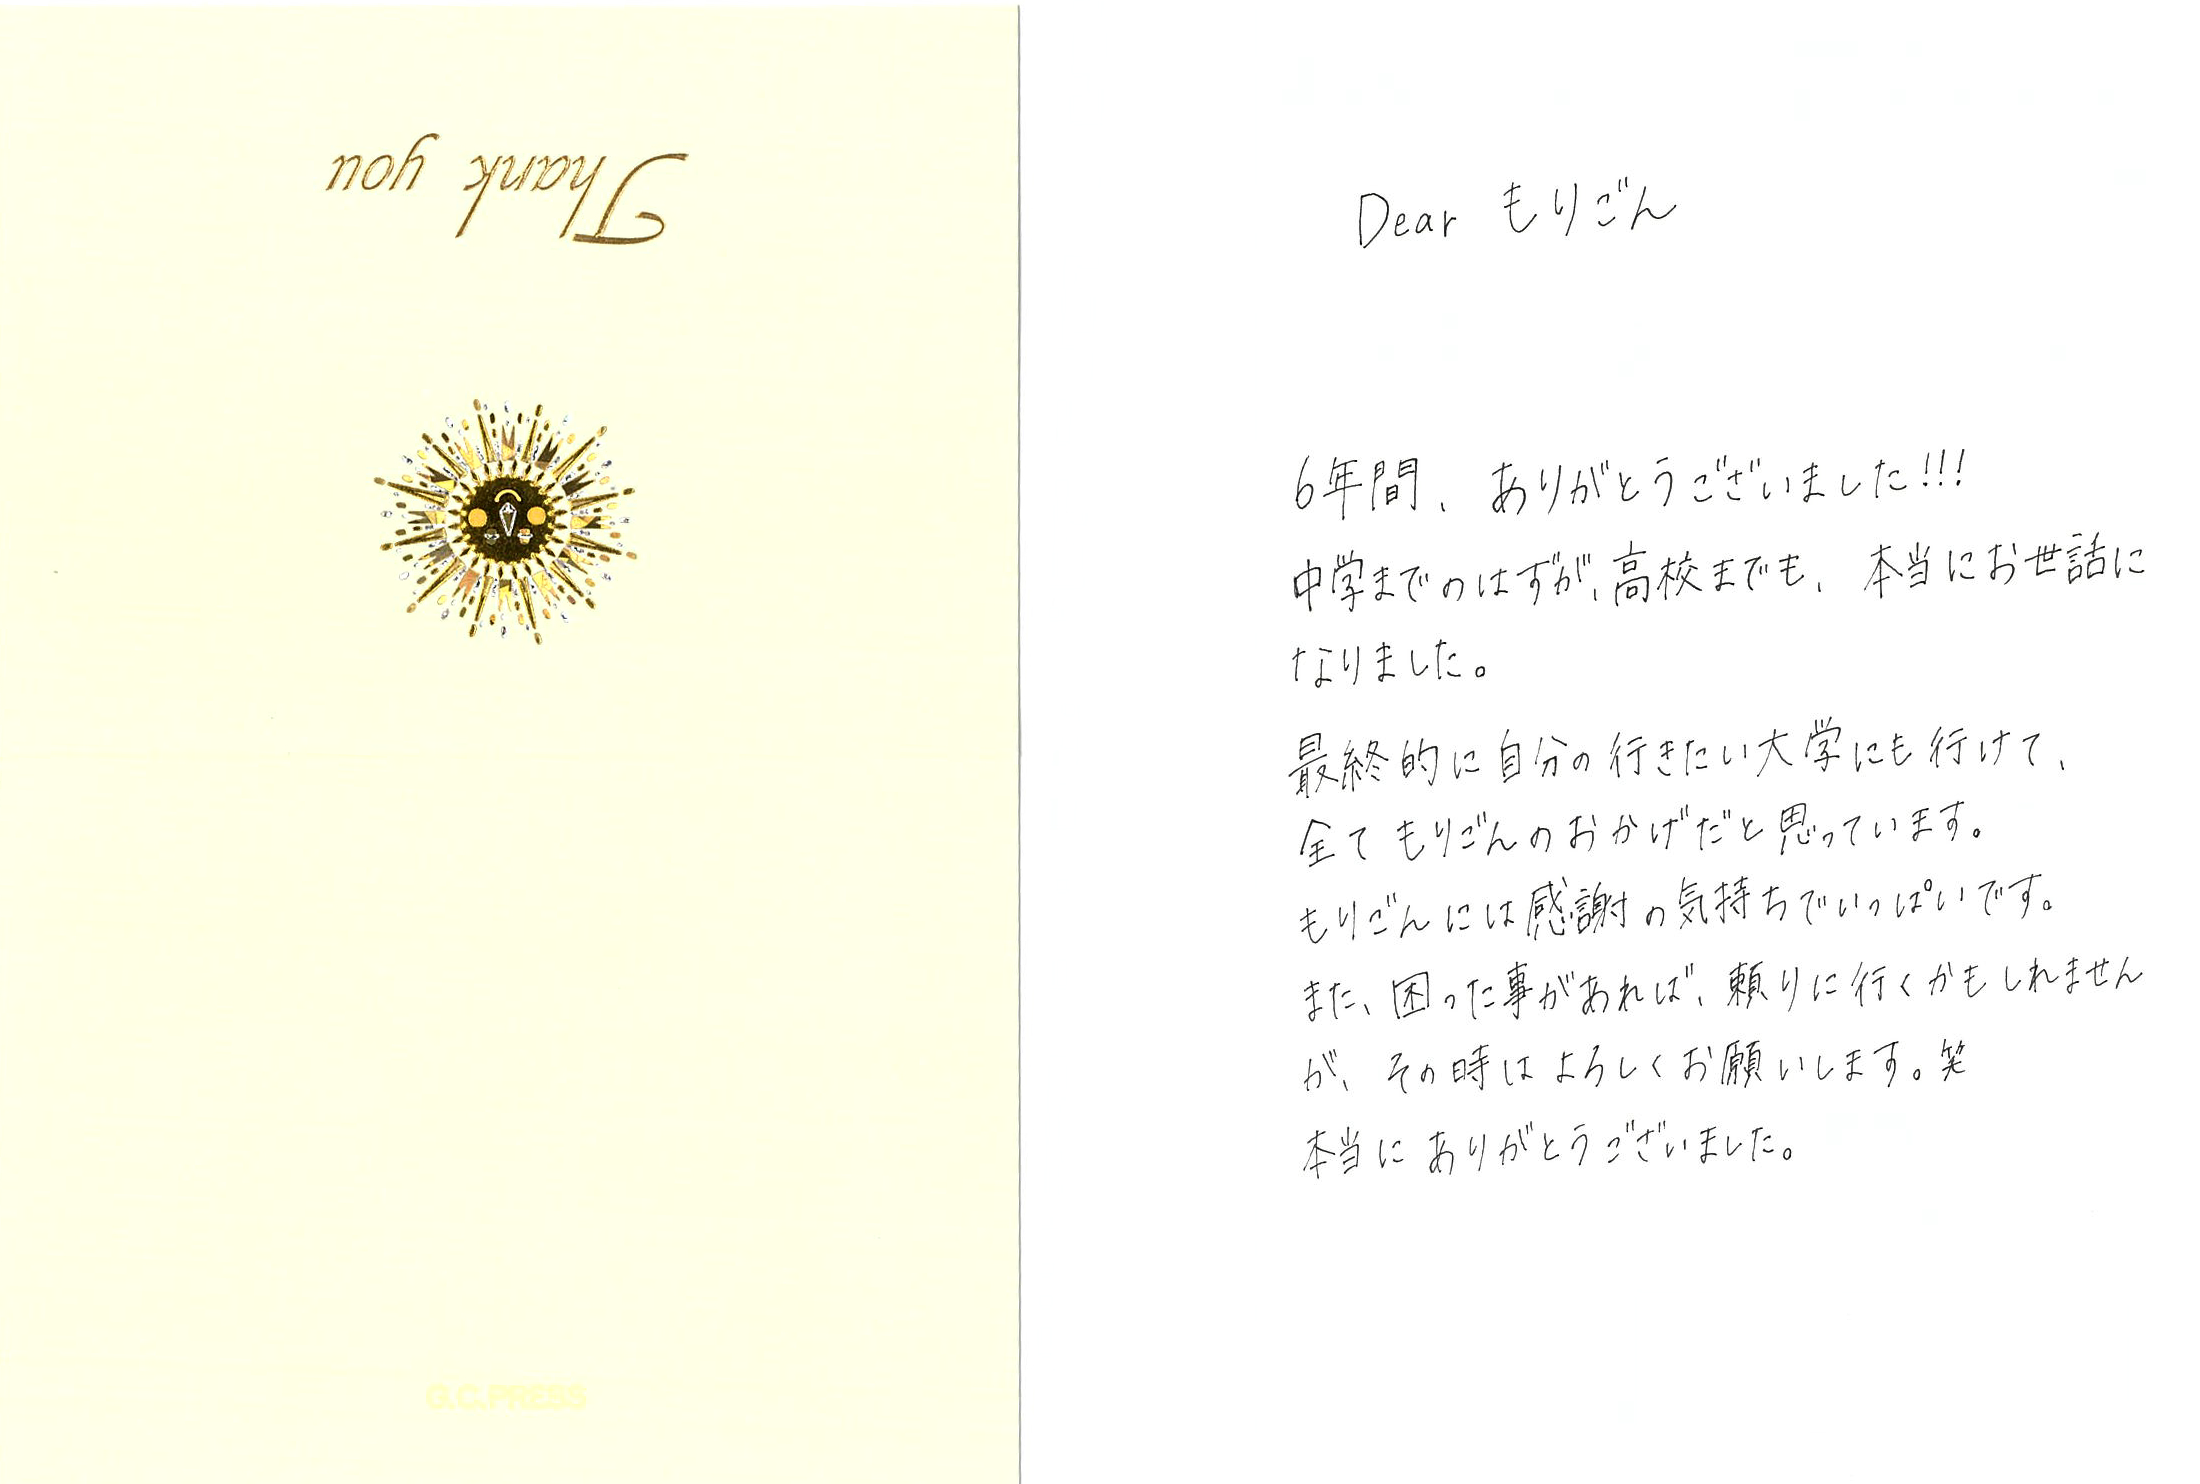 Thank you
G.C.PRESS
Dear もりごん
6年間、ありがとうございました!!!
中学までのはずが、高校までも、本当にお世話に
なりました。
最終的に自分の行きたい大学にも行けて、
全てもりごんのおかげだと思っています。
もりごんには感謝の気持ちでいっぱいです。
また、困った事があれば、頼りに行くかもしれません
が、その時はよろしくお願いします。笑
本当にありがとうございました。